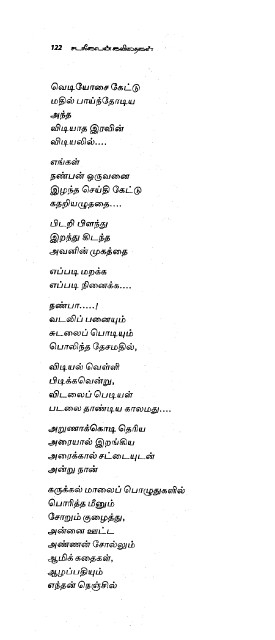 122 கவிதைகள்
வெடியோசை கேட்டு
மதில் பாய்ந்தோடிய
அந்த
விடியாத இரவின்
விடியலில்....
எங்கள்
நண்பன் ஒருவனை
இழந்த செய்தி கேட்டு
கதறியழுததை....
பிடறி பிளந்து
இறந்து கிடந்த
அவனின் முகத்தை
எப்படி மறக்க
எப்படி நினைக்க....
நண்பா.....!
வடலிப் பனையும்
சுடலைப் பொடியும்
பொலிந்த தேசமதில்,
விடியல் வெள்ளி
பிடிக்கவென்று,
விடலைப் பெடியள்
படலை தாண்டிய காலமது....
அறுணாக்கொடி தெரிய
அரையால் இறங்கிய
அரைக்கால் சட்டையுடன்
அன்று நான்
கருக்கல் மாலைப் பொழுதுகளில்
பொரித்த மீனும்
சோறும் குழைத்து,
அன்னை ஊட்ட
அண்ணன் சோல்லும்
ஆமிக் கதைகள்,
ஆழப்பதியும்
எந்தன் நெஞ்சில்